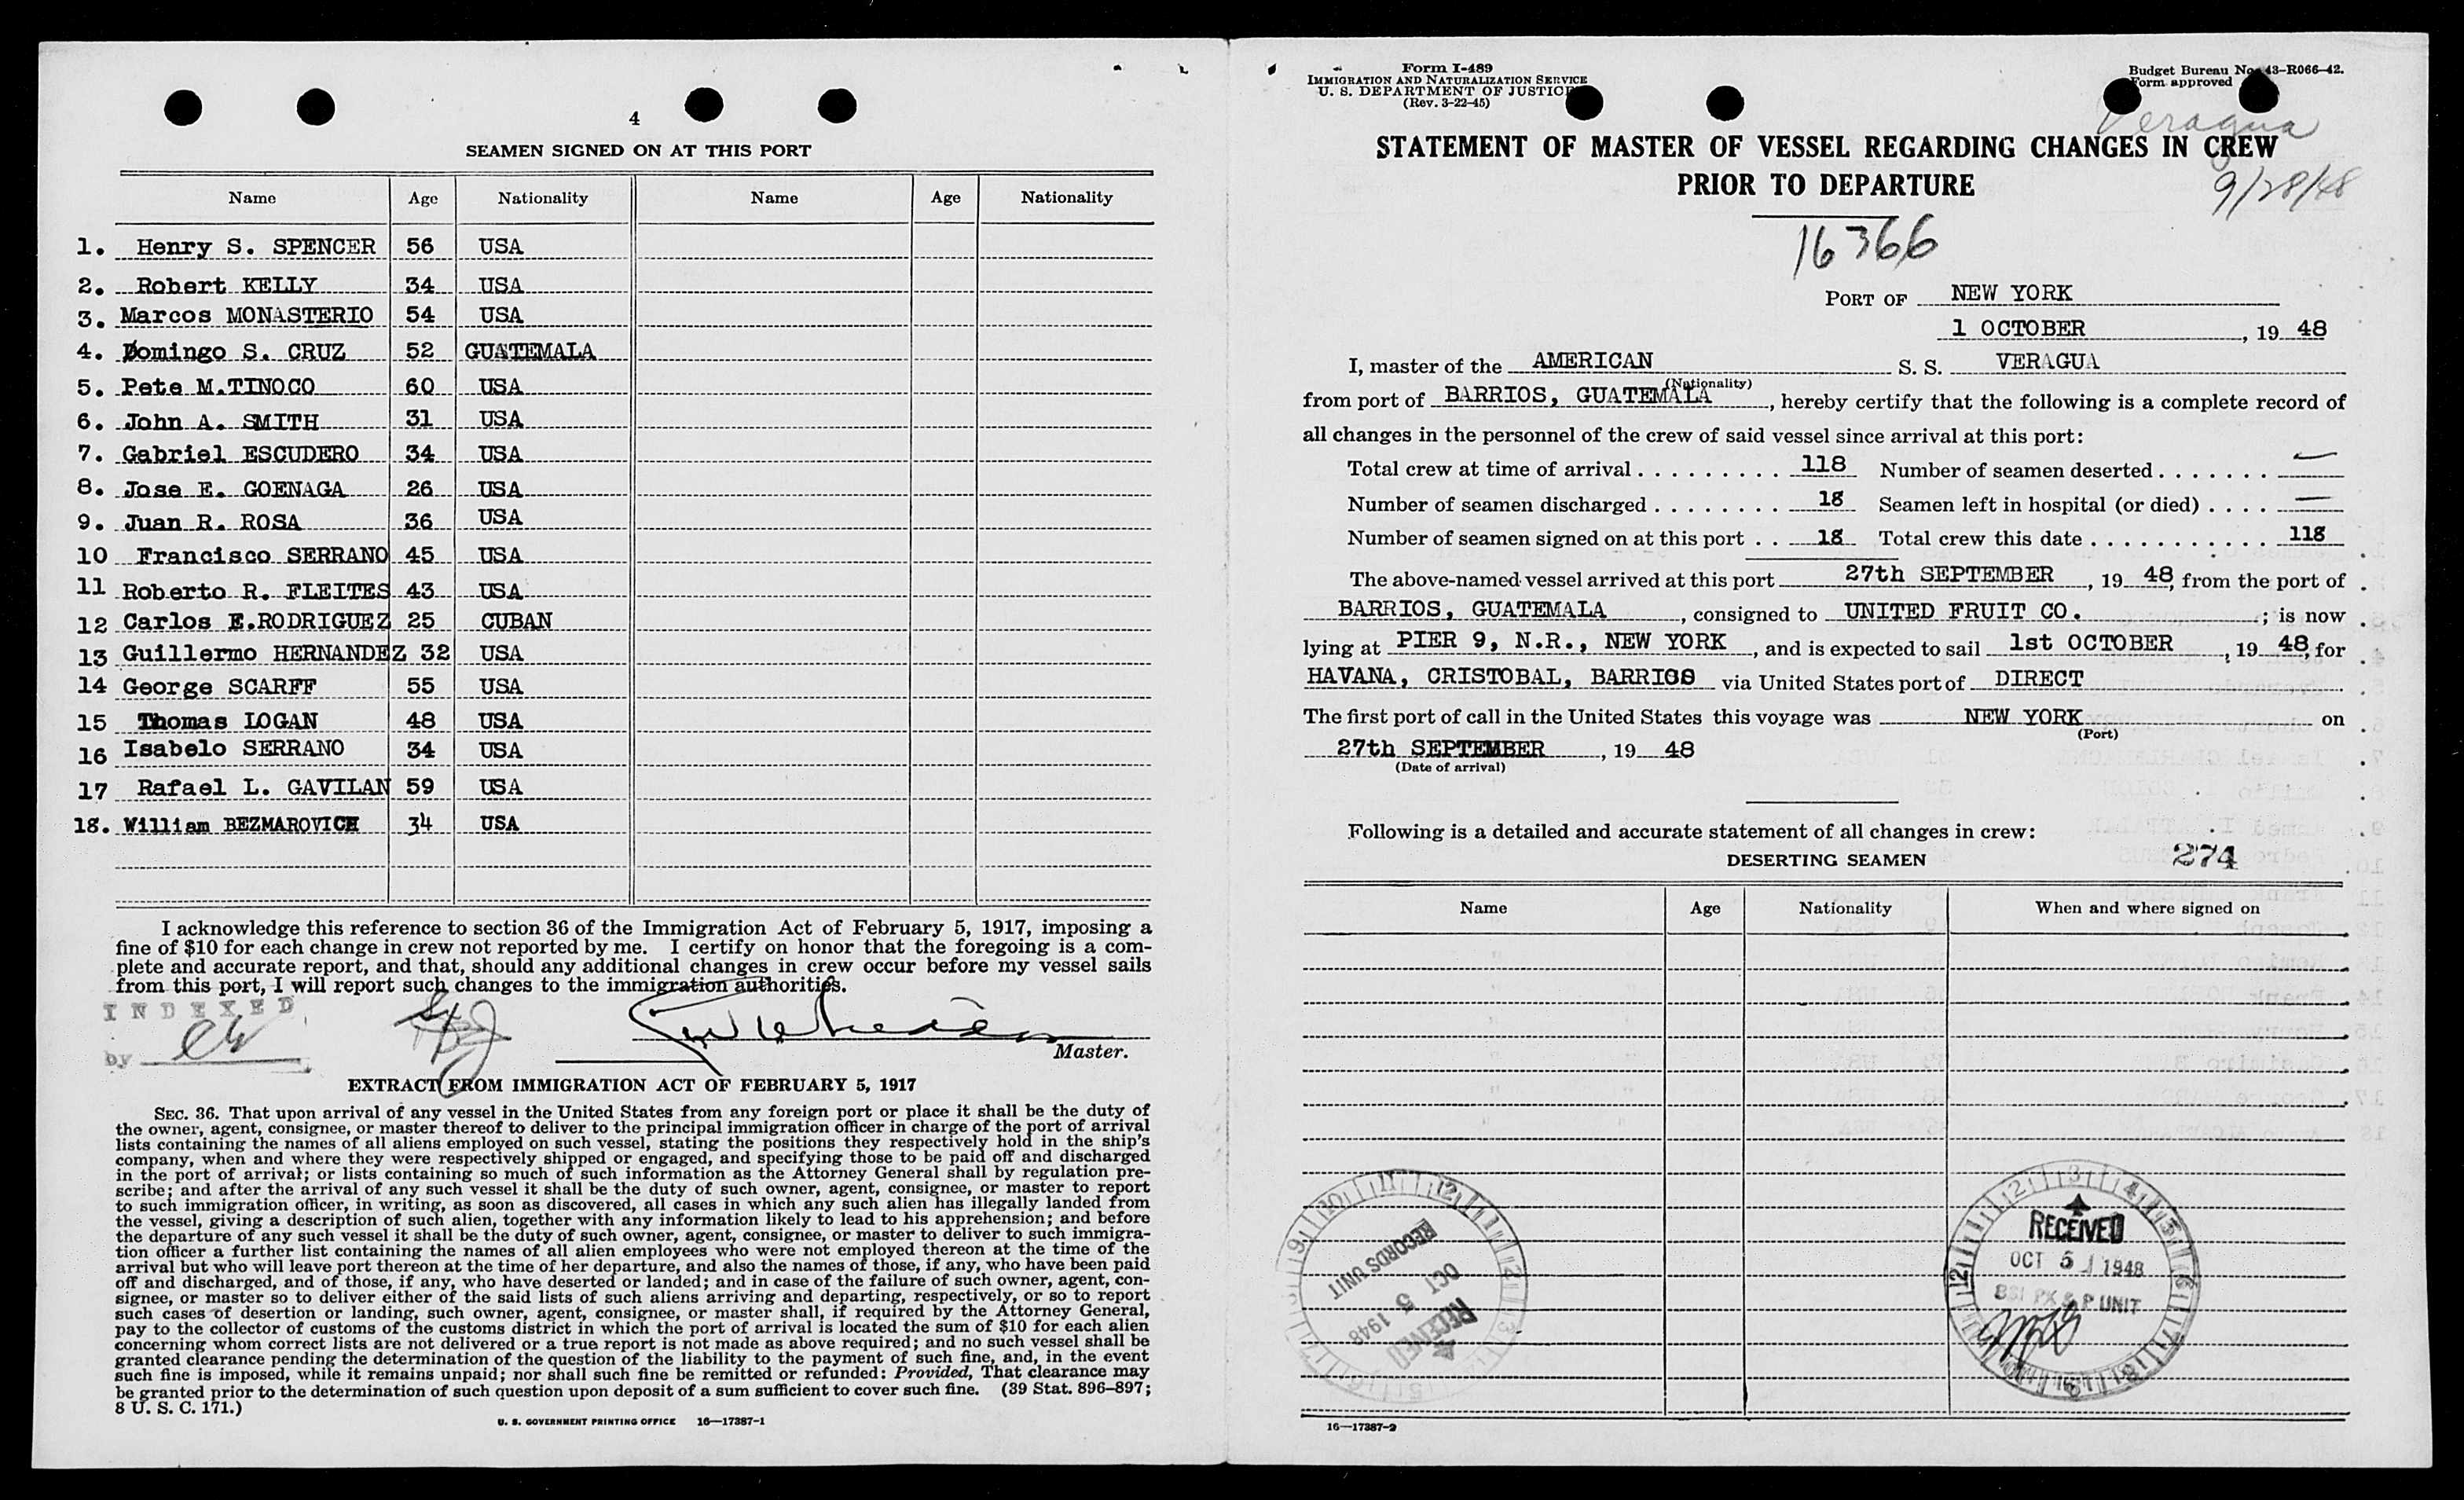 4
SEAMEN SIGNED ON AT THIS PORT
Name Age Nationality Name Age Nationality
1. Henry S. SPENCER 56 USA
2. Robert KELLY 34 USA
3. Marcos MONASTERIO 54 USA
4. Domingo S. CRUZ 52 GUATEMALA
5. Pete M.TINOCO 60 USA
6. John A. SMITH 31 USA
7. Gabriel ESCUDERO 34 USA
8. Jose E. GOENAGA 26 USA
9. Juan R. ROSA 36 USA
10 Francisco SERRANO 45 USA
11 Roberto R. FLEITES 43 USA
12 Carlos E.RODRIGUEZ 25 CUBAN
13 Guillermo HERNANDEZ 32 USA
14 George SCARFF 55 USA
15 Thomas LOGAN 48 USA
16 Isabelo SERRANO 34 USA
17 Rafael L. GAVILAN 59 USA
18. William BEZMAROVICH 34 USA
I acknowledge this reference to section 36 of the Immigration Act of February 5, 1917, imposing a
fine of $10 for each change in crew not reported by me. I certify on honor that the foregoing is a com-
plete and accurate report, and that, should any additional changes in crew occur before my vessel sails
from this port, I will report such changes to the immigration authorities.
INDEXED
by
Master.
EXTRACT FROM IMMIGRATION ACT OF FEBRUARY 5, 1917
SEC. 36. That upon arrival of any vessel in the United States from any foreign port or place it shall be the duty of
the owner, agent, consignee, or master thereof to deliver to the principal immigration officer in charge of the port of arrival
lists containing the names of all aliens employed on such vessel, stating the positions they respectively hold in the ship's
company, when and where they were respectively shipped or engaged, and specifying those to be paid off and discharged
in the port of arrival; or lists containing so much of such information as the Attorney General shall by regulation pre-
scribe; and after the arrival of any such vessel it shall be the duty of such owner, agent, consignee, or master to report
to such immigration officer, in writing, as soon as discovered, all cases in which any such alien has illegally landed from
the vessel, giving a description of such alien, together with any information likely to lead to his apprehension; and before
the departure of any such vessel it shall be the duty of such owner, agent, consignee, or master to deliver to such immigra-
tion officer a further list containing the names of all alien employees who were not employed thereon at the time of the
arrival but who will leave port thereon at the time of her departure, and also the names of those, if any, who have been paid
off and discharged, and of those, if any, who have deserted or landed; and in case of the failure of such owner, agent, con-
signee, or master so to deliver either of the said lists of such aliens arriving and departing, respectively, or so to report
such cases of desertion or landing, such owner, agent, consignee, or master shall, if required by the Attorney General,
pay to the collector of customs of the customs district in which the port of arrival is located the sum of $10 for each alien
concerning whom correct lists are not delivered or a true report is not made as above required; and no such vessel shall be
granted clearance pending the determination of the question of the liability to the payment of such fine, and, in the event
such fine is imposed, while it remains unpaid; nor shall such fine be remitted or refunded: Provided, That clearance may
be granted prior to the determination of such question upon deposit of a sum sufficient to cover such fine. (39 Stat. 896-897;
8 U. S. C. 171.)
U. S. GOVERNMENT PRINTING OFFICE 16—17387-1
Form I-489
IMMIGRATION AND NATURALIZATION SERVICE
U. S. DEPARTMENT OF JUSTICE
(Rev. 3-22-45)
Budget Bureau No. 43-R066-42.
Form approved
Veragua
STATEMENT OF MASTER OF VESSEL REGARDING CHANGES IN CREW
PRIOR TO DEPARTURE
9/28/48
16366
PORT OF NEW YORK
1 OCTOBER, 19 48
I, master of the AMERICAN S. S. VERAGUA
(Nationality)
from port of BARRIOS, GUATEMALA, hereby certify that the following is a complete record of
all changes in the personnel of the crew of said vessel since arrival at this port:
Total crew at time of arrival . . . . . . . . . 118 Number of seamen deserted . . . . . . . —
Number of seamen discharged . . . . . . . . 18 Seamen left in hospital (or died) . . . . —
Number of seamen signed on at this port . . 18 Total crew this date . . . . . . . . . . . 118
The above-named vessel arrived at this port 27th SEPTEMBER, 19 48, from the port of
BARRIOS, GUATEMALA, consigned to UNITED FRUIT CO. ; is now
lying at PIER 9, N.R., NEW YORK, and is expected to sail 1st OCTOBER, 19 48, for
HAVANA, CRISTOBAL, BARRIOS via United States port of DIRECT
The first port of call in the United States this voyage was NEW YORK on
(Port)
27th SEPTEMBER, 19 48
(Date of arrival)
Following is a detailed and accurate statement of all changes in crew:
DESERTING SEAMEN 274
Name Age Nationality When and where signed on
RECORDS UNIT
OCT 5 1948
RECEIVED
RECEIVED
OCT 5 1948
BSI PX & P UNIT
16—17387-2